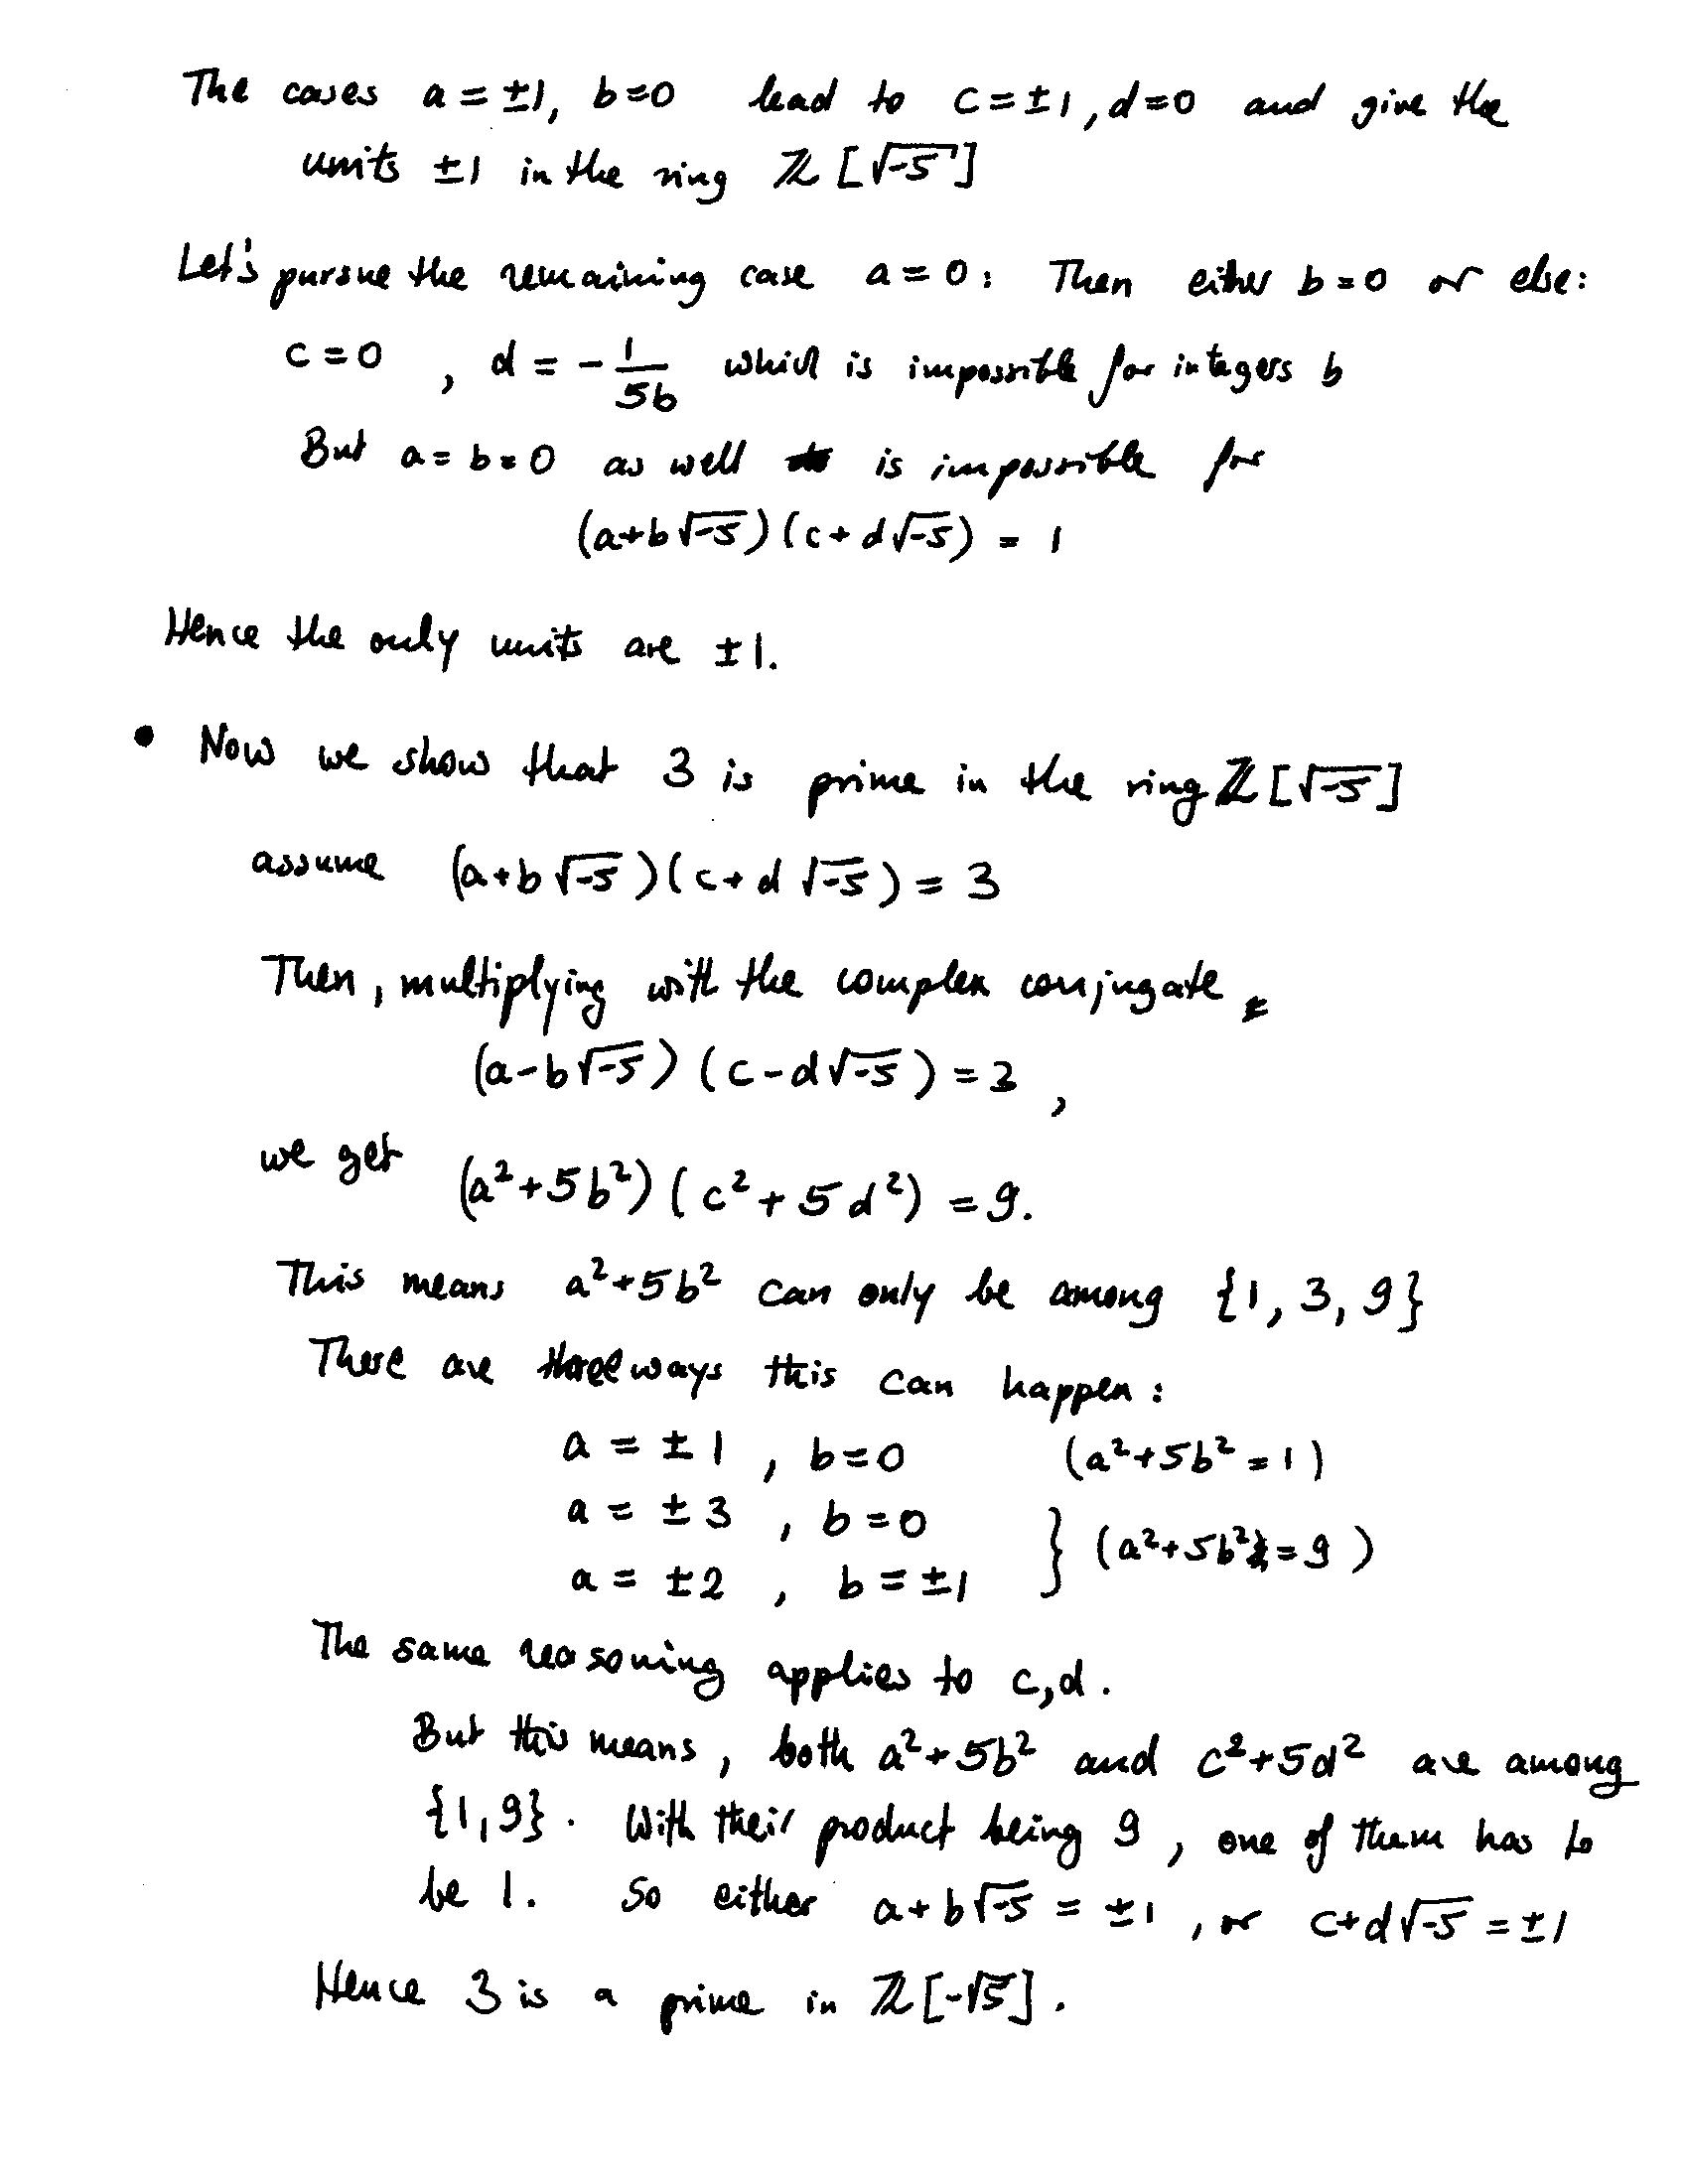 The cases a = ±1, b=0 lead to c=±1, d=0 and give the
units ±1 in the ring ℤ[√-5]
Let's pursue the remaining case a=0: Then either b=0 or else:
c=0, d = -1/5b which is impossible for integers b
But a=b=0 as well is impossible for
(a+b√-5)(c+d√-5) = 1
Hence the only units are ±1.
• Now we show that 3 is prime in the ring ℤ[√-5]
assume (a+b√-5)(c+d√-5) = 3
Then, multiplying with the complex conjugate
(a-b√-5)(c-d√-5) = 3,
we get (a²+5b²)(c²+5d²) = 9.
This means a²+5b² can only be among {1, 3, 9}
There are three ways this can happen:
a = ±1, b=0 (a²+5b² = 1)
a = ±3, b=0
} (a²+5b² = 9)
a = ±2, b=±1
The same reasoning applies to c,d.
But this means, both a²+5b² and c²+5d² are among
{1,9}. With their product being 9, one of them has to
be 1. So either a+b√-5 = ±1, or c+d√-5 = ±1
Hence 3 is a prime in ℤ[-√5].